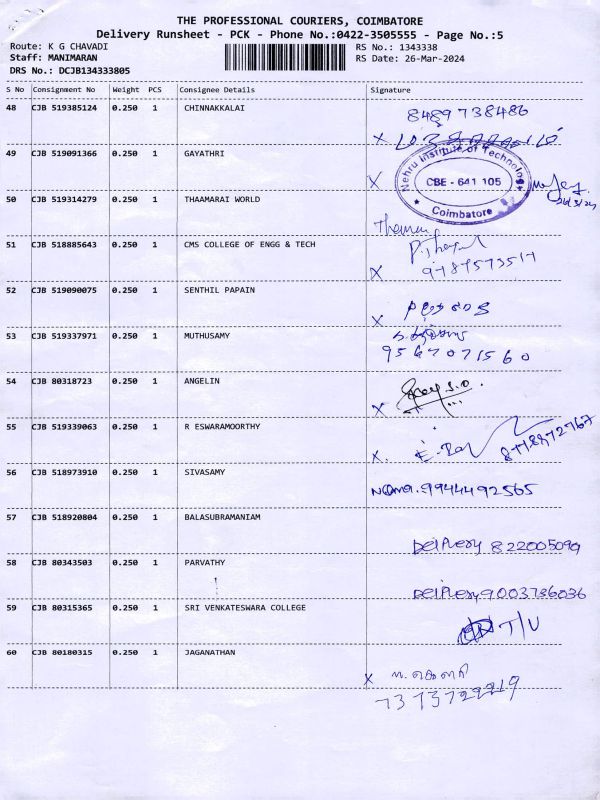 THE PROFESSIONAL COURIERS, COIMBATORE
Delivery Runsheet - PCK - Phone No.:0422-3505555 - Page No.:5
Route: K G CHAVADI
Staff: MANIMARAN
DRS No.: DCJB134333805
RS No.: 1343338
RS Date: 26-Mar-2024
S No Consignment No Weight PCS Consignee Details Signature
48 CJB 519385124 0.250 1 CHINNAKKALAI 8489738486
X
49 CJB 519091366 0.250 1 GAYATHRI X
Nehru Institute of Technology
CBE - 641 105
Coimbatore
50 CJB 519314279 0.250 1 THAAMARAI WORLD
51 CJB 518885643 0.250 1 CMS COLLEGE OF ENGG & TECH
X
52 CJB 519090075 0.250 1 SENTHIL PAPAIN
X
53 CJB 519337971 0.250 1 MUTHUSAMY
9567071560
54 CJB 80318723 0.250 1 ANGELIN
X
55 CJB 519339063 0.250 1 R ESWARAMOORTHY
X.
56 CJB 518973910 0.250 1 SIVASAMY
9944492565
57 CJB 518920804 0.250 1 BALASUBRAMANIAM
Delivery 822005099
58 CJB 80343503 0.250 1 PARVATHY
Delivery 9003736036
59 CJB 80315365 0.250 1 SRI VENKATESWARA COLLEGE
T/U
60 CJB 80180315 0.250 1 JAGANATHAN
X